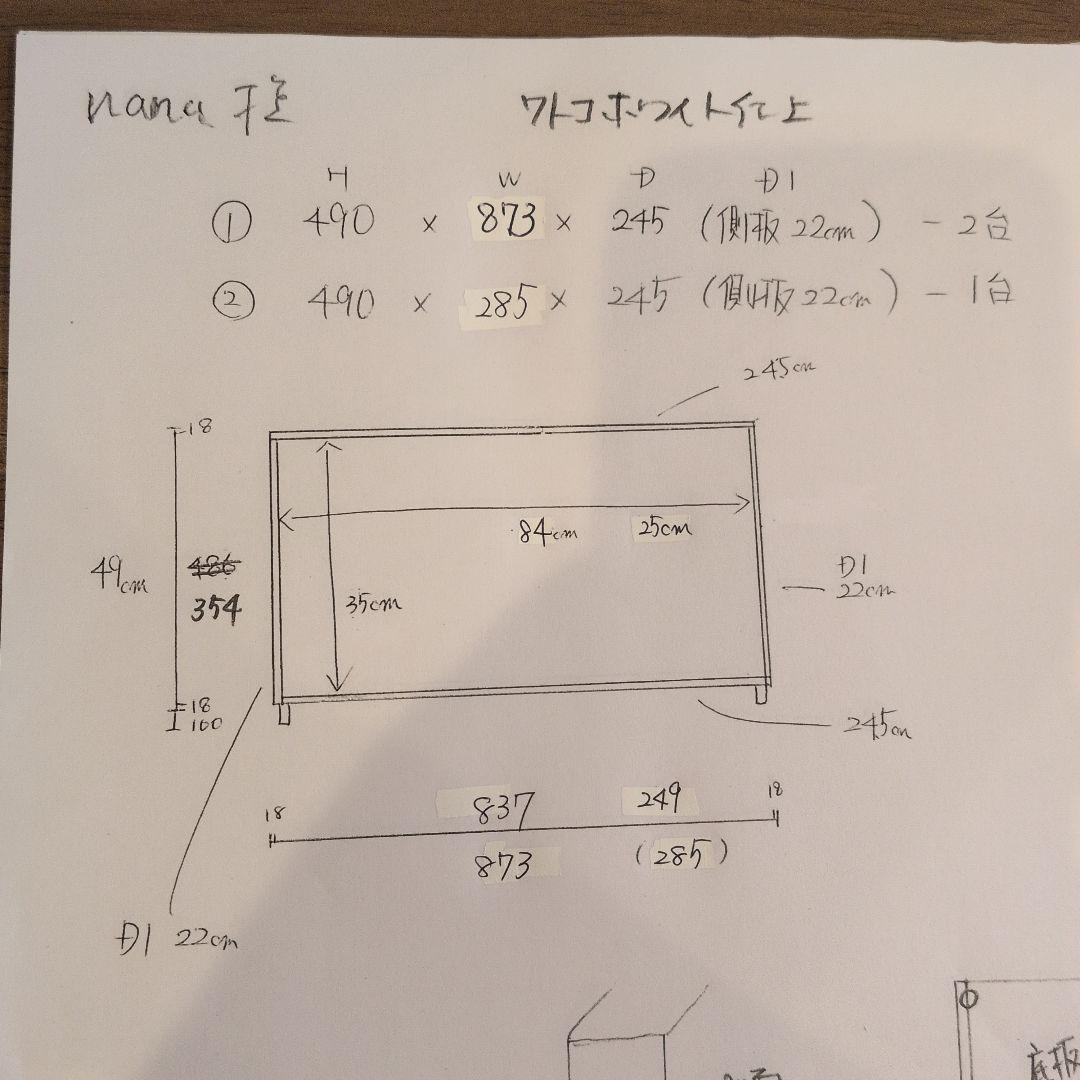 nana 様
ワトコホワイト仕上
H W D D1
① 490 × 873 × 245 (側板 22cm) - 2台
② 490 × 285 × 245 (側板 22cm) - 1台
245cm
18
84cm 25cm
49cm
486
354
35cm
D1
22cm
18
100
245cm
18 837 249 18
873 (285)
D1 22cm
底板